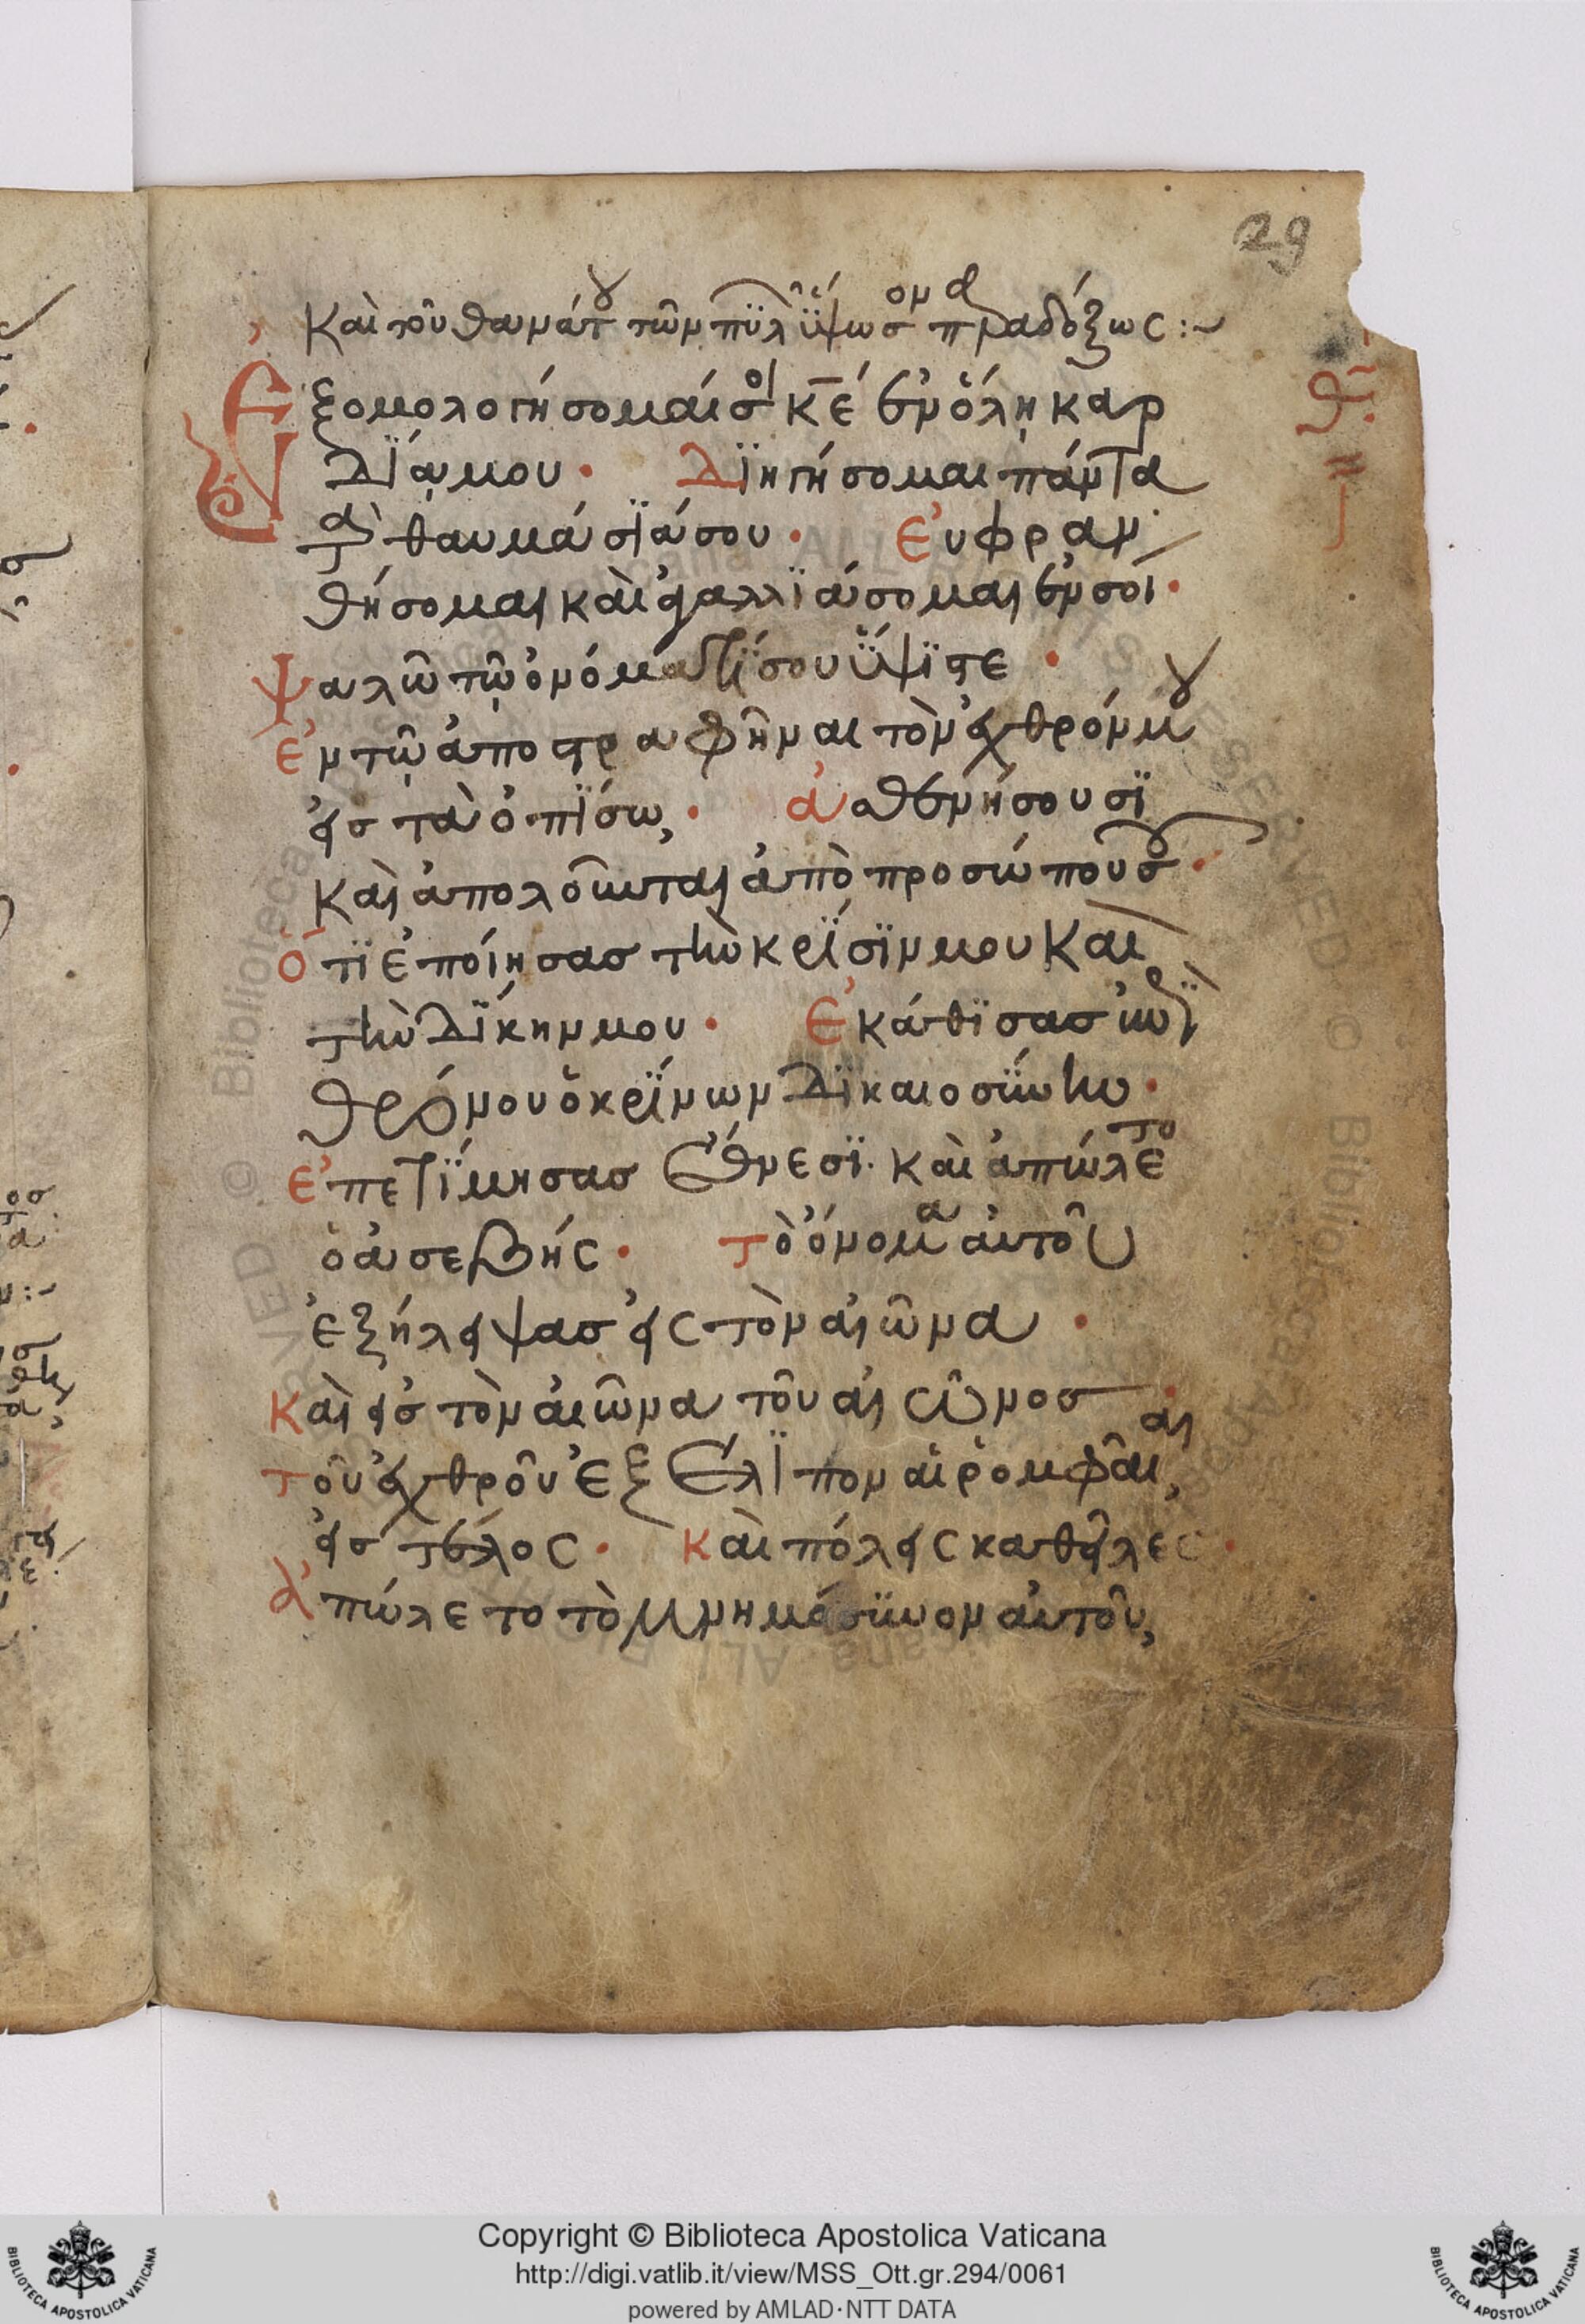 29
καὶ τοῦ θανάτου τῶν πυλῶν ὑψώσ ομα παραδόξως :~
Ἐξομολογήσομαί σοι κε ἐν ὅλη καρ
δία μου · Διηγήσομαι πάντα
τὰ θαυμάσϊά σου · Εὐφραν
θήσομαι καὶ ἀγαλλϊάσομαι ἐν σοί ·
Ψαλῶ τῷ ὀνόματί σου ὕψϊστε ·
Ἐν τῷ ἀποστραφῆναι τὸν ἐχθρόν μου
εἰσ τὰ ὀπίσω, · ἀσθενήσουσϊ
καὶ ἀπολοῦνται ἀπὸ προσώπου σου ·
Ὅτϊ ἐποίησασ τὴν κρίσϊν μου καὶ
τὴν δίκην μου · Ἐκάθϊσασ ἐπὶ
θρόνου ὁ κρίνων δϊκαιοσύνην ·
Ἐπετίμησασ ἔθνεσϊ · καὶ ἀπώλετο
ὁ ἀσεβής · Τὸ ὄνομα αὐτοῦ
ἐξήλειψασ εἰς τὸν αἰῶνα ·
Καὶ εἰσ τὸν αἰῶνα τοῦ αἰῶνοσ ·
Τοῦ ἐχθροῦ ἐξέλιπον αἱ ῥομφαῖαι,
εἰσ τέλος · Καὶ πόλεις καθεῖλες ·
Ἀπώλετο τὸ μνημόσυνον αὐτοῦ,
Copyright © Biblioteca Apostolica Vaticana
http://digi.vatlib.it/view/MSS_Ott.gr.294/0061
powered by AMLAD·NTT DATA
BIBLIOTECA APOSTOLICA VATICANA
BIBLIOTECA APOSTOLICA VATICANA